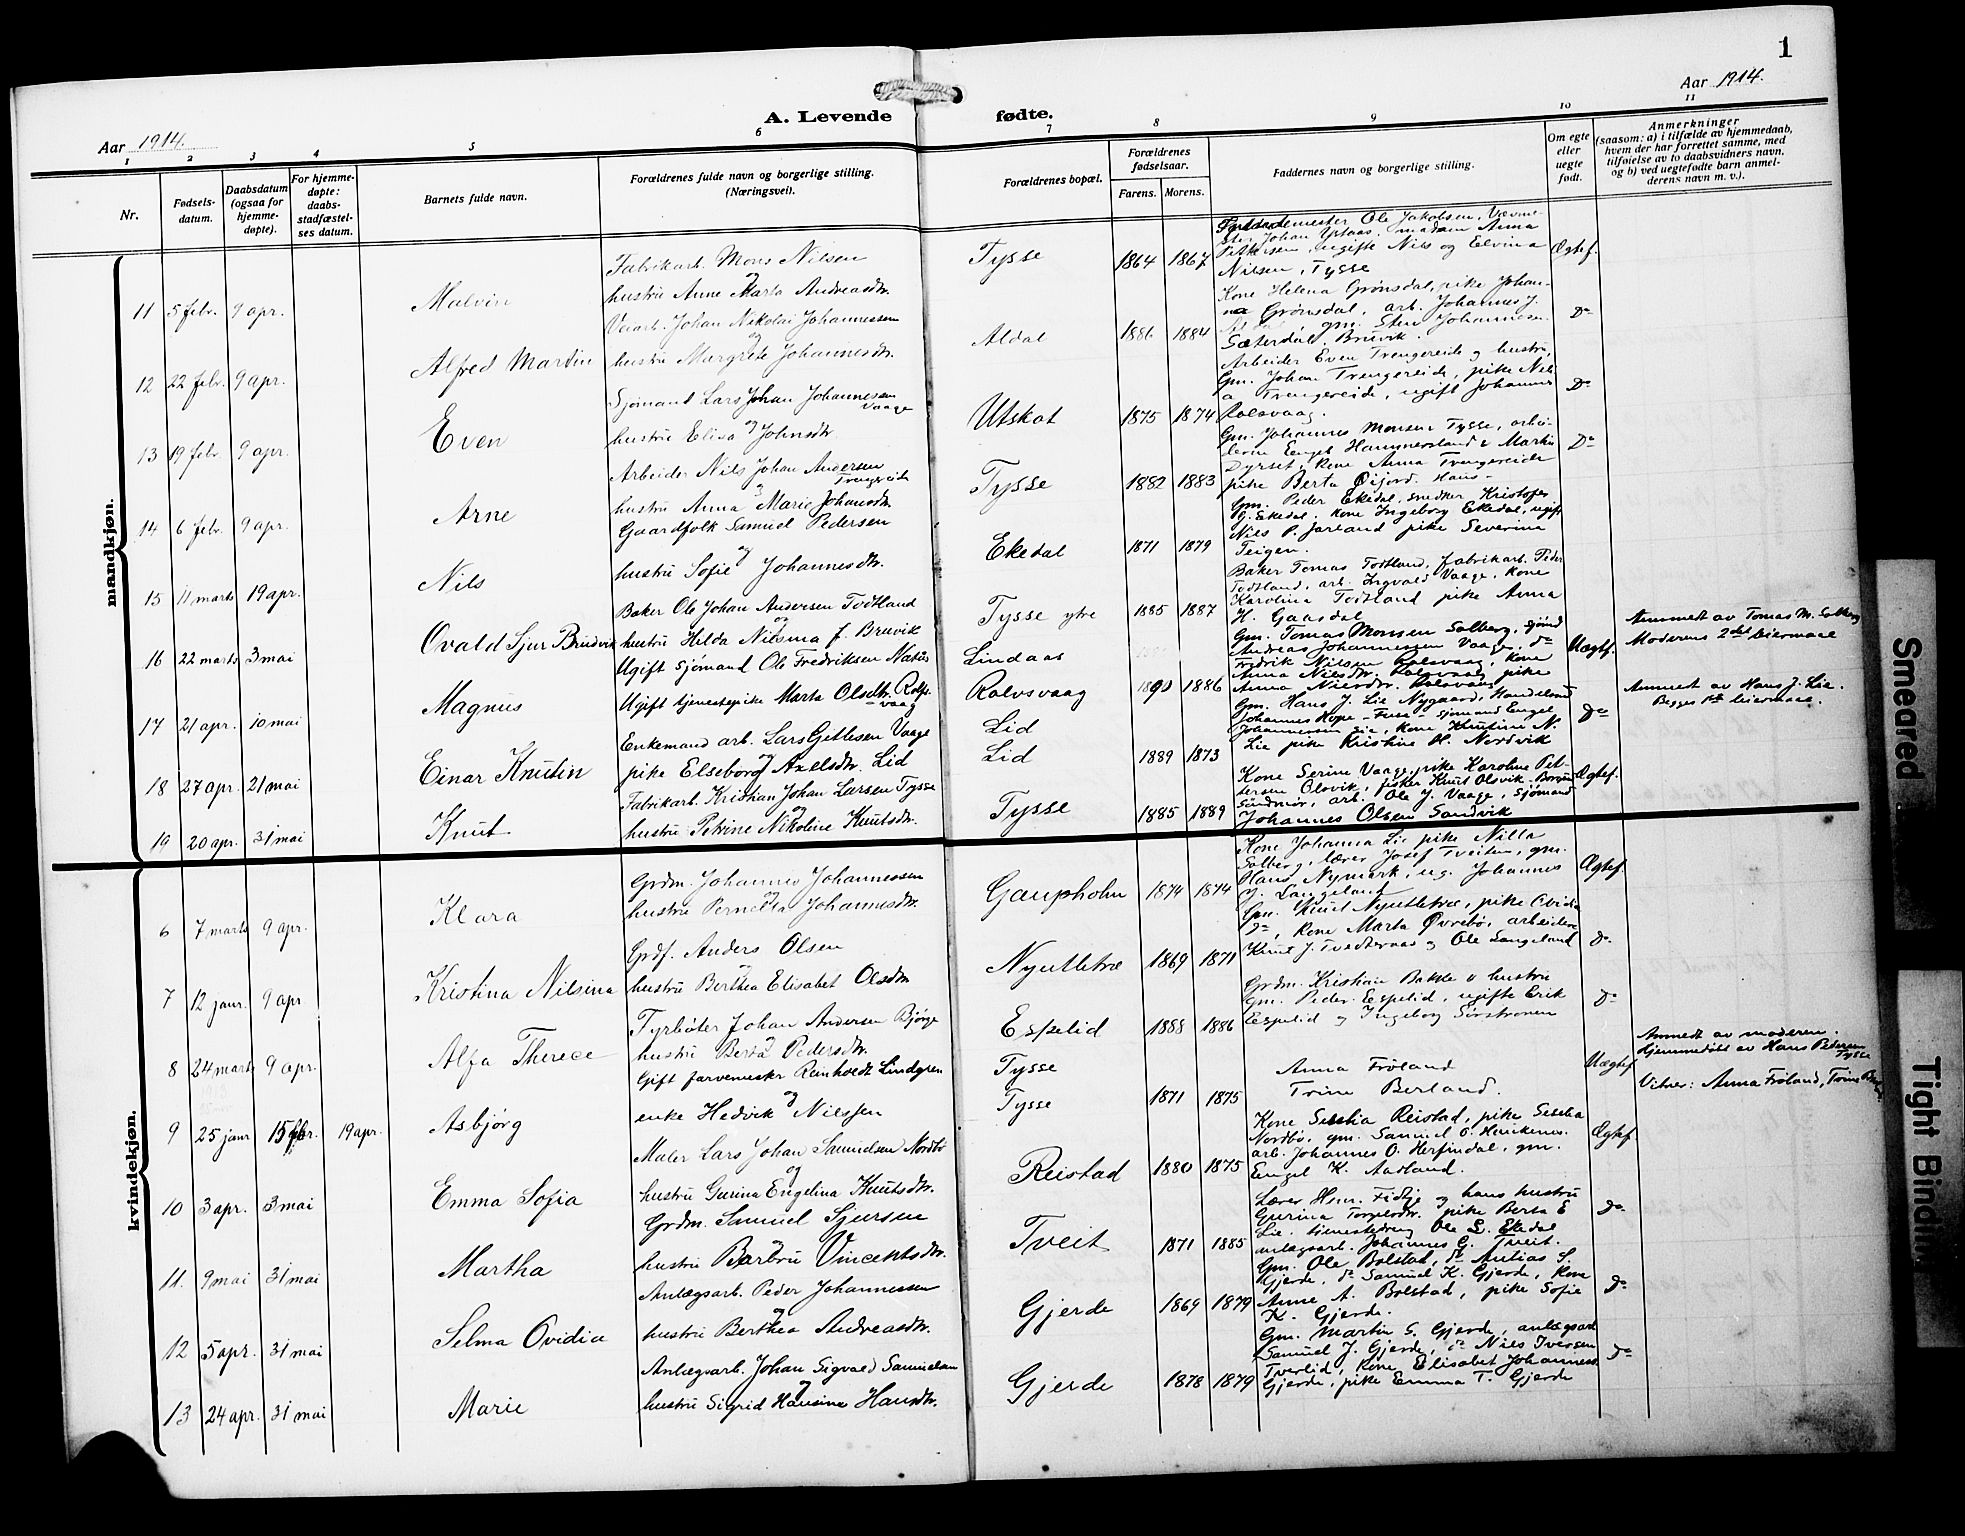 1
Aar 1914.
A. Levende fødte.
Aar 1914.
1 2 3 4 5 6 7 8 9 10 11
Nr.
Fødsels-
datum.
Daabsdatum
(ogsaa for
hjemme-
døpte).
For hjemme-
døpte:
daabs-
stadfæstel-
ses datum.
Barnets fulde navn.
Forældrenes fulde navn og borgerlige stilling.
(Næringsvei).
Forældrenes bopæl.
Forældrenes
fødselsaar.
Farens. Morens.
Faddernes navn og borgerlige stilling.
Om egte
eller
uegte
født.
Anmerkninger
(saasom: a) i tilfælde av hjemmedaab,
hvem der har forrettet samme, med
tilføielse av to daabsvidners navn,
og b) ved uegtefødte barn anmel-
derens navn m. v.).
mandkjøn.
11 5 febr. 9 apr. Malvin
Fabrikarb. Mons Nilsen
og
hustru Anne Marta Andreasdtr.
Tysse 1864 1867
Ole Jakobsen, Vævme-
ster Johan madam Anna
Pettersen, ugifte Nils og Elvina
Nilsen, Tysse
Ægtef.
12 22 febr. 9 apr. Alfred Martin
Veiarb. Johan Nikolai Johannessen
og
hustru Margrete Johannesdtr.
Aldal 1886 1884
Kone Helena Grønsdal, pike Johan-
na Grønsdal, arb. Johannes J.
Aldal, gm. Sten Johannesen
Sæterdal, Bruvik.
Do
13 19 febr. 9 apr. Even
Sjømand Lars Johan Johannesen
Vaage
og
hustru Elisa Johnsdtr.
Utskot 1875 1874
Arbeider Even Trengereide og hustru,
Gm. Johan Trengereide, pike Nils-
a Trengereide, ugift Johannes
Rolsvaag.
Do
14 6 febr. 9 apr. Arne
Arbeider Nils Johan Andersen
Trengereide
og
hustru Anna Marie Johansdtr.
Tysse 1882 1883
Gm. Johannes Monsen Tysse, arbei-
derne Engel Hammersland & Martin
Dyrset, kone Anna Trengereide
pike Berta Øijord. Haus-
Do
15 11 marts 19 apr. Nils
Gaardfolk Samuel Pedersen
og
hustru Sofie Johannesdtr.
Ekedal 1871 1879
Gm. Peder Ekedal, snedker Kristofer
J. Ekedal, kone Ingeborg Ekedal, ugift
Nils P. Jarland pike Severina
Teigen.
16 22 marts 3 mai Ovald Sjur Bruvik
Baker Ole Johan Andersen Todtland
og
hustru Hilda Nilsina f. Bruvik
Tysse ytre 1885 1887
Baker Tomas Todtland, fabrikarb. Peder
Todtland, arb. Ingvald Vaage, kone
Karolina Todtland pike Anna
H. Gaasdal
17 21 apr. 10 mai Magnus
Ugift sjømand Ole Fredriksen Natås
Ugift tjenestepike Marta Olsdtr. Rolfs-
vaag
Lindaas
Rolvsvaag 1890 1886
Gm. Tomas Monsen Solberg, sjømd
Andreas Johannessen Vaage, do
Fredrik Nilsen Rolsvaag, kone
Anna Nilsdtr. Rolsvaag pike
Anna Nilsdtr. Rolsvaag
Uægtf.
Anmeldt av Tomas M. Solberg
Moderens 2det leiermaal
18 27 apr. 21 mai Einar Knutin
Enkemand arb. Lars Getlesen Vaage
og
pike Elseborg Axelsdtr. Lid
Lid
Lid 1889 1873
Gm. Hans J. Lie Nygaard, Handelsmd
Johannes Hope - Fuse - sjømand Engel
Johannessen Lie, kone Knutine N.
Lie pike Kristine H. Nordvik
Do
Anmeldt av Hans J. Lie.
Begges 1ste leiermaal.
19 20 apr. 31 mai Knut
Fabrikarb. Kristian Johan Larsen Tysse
og
hustru Petrine Nikoline Knutsdtr.
Tysse 1885 1889
Kone Serine Vaage, pike Karoline Pet-
tersen Olsvik, fisker Knut Olsvik - Borgund
Søndmør, arb. Ole J. Vaage, sjømand
Johannes Olsen Sandvik
Ægtef.
kvindekjøn.
6 7 marts 9 apr. Klara
Grdm. Johannes Johannessen
og
hustru Pernella Johannesdtr.
Gaupholm 1874 1874
Kone Johanna Lie pike Nilla
Solberg, lærer Josef Tveiten, gm.
Hans Nymark, ug. Johannes
J. Langeland
Ægtef.
7 12 janr. 9 apr Kristina Nilsina
Grdf. Anders Olsen
og
hustru Berthea Elisabet Olsdtr
Nyutletræ 1869 1871
Gm. Knut Nyutletræ, pike Ovidia
do, kone Marta Øvrebø, arbeidere
Knut J. Tvedteraas og Ole Langeland
Do
8 24 marts 9 apr. Alfa Therece
Fyrbøter Johan Andersen Bjørge
og
hustru Berta Pedersdtr.
Espelid 1888 1886
Grdm. Kristian Bakke & hustru
gm. Peder Espelid, ugifte Erik
Espelid og Ingeborg Sørstrønen
Do
9 25 janr 15 febr. 19 apr. Asbjørg
Gift farvemester Reinholdt Lindgren
og
enke Hedvik Nilssen
Tysse
Tysse 1871 1875
Anna Frøland
Trine Berland.
Uægtef
Anmeldt av moderen.
Hjemmedøbt av Hans Pedersen
Tysse
Vitner: Anna Frøland, Trine
10 3 apr. 3 mai Emma Sofia
Maler Lars Johan Samuelsen Nordbø
og
hustru Gurina Engelina Knutsdtr.
Reistad 1880 1875
Kone Sissilia Reistad, pike Sissilia
Nordbø, gm. Samuel O. Henriknes.
arb. Johannes O. Herfindal, gm.
Engel K. Aadland.
Ægtef
11. 9 mai 31 mai Martha
Grdm. Samuel Sjursen
og
hustru Barbru Vincentsdtr.
Tveit 1871 1885
Lærer Henr. Fidtje og hans hustru
Gurina Torgersdtr. pike Berta E
Lie, tjenestedreng Ole L. Ekedal
anlægsarb. Johannes G. Tveit.
Do
12 5 apr. 31 mai Selma Ovidia
Anlægsarb. Peder Johannessen
og
hustru Berthea Andreasdtr.
Gjerde 1869 1879
Gm. Ole Bolstad, do Antias S.
Gjerde, do Samuel K. Gjerde, kone
Anne A. Bolstad, pike Sofie
K. Gjerde.
Do
13 24 apr. 31 mai Marie
Anlægsarb. Johan Sigvald Samuelsen
og
hustru Sigrid Hansine Hansdtr.
Gjerde 1878 1879
Gm. Martin S. Gjerde, anlægsarb
Samuel J. Gjerde, do Nils Iversen
Tverlid, kone Elisabet Johannes
Gjerde, pike Emma T. Gjerde
Do
Smeared
Tight Bindin